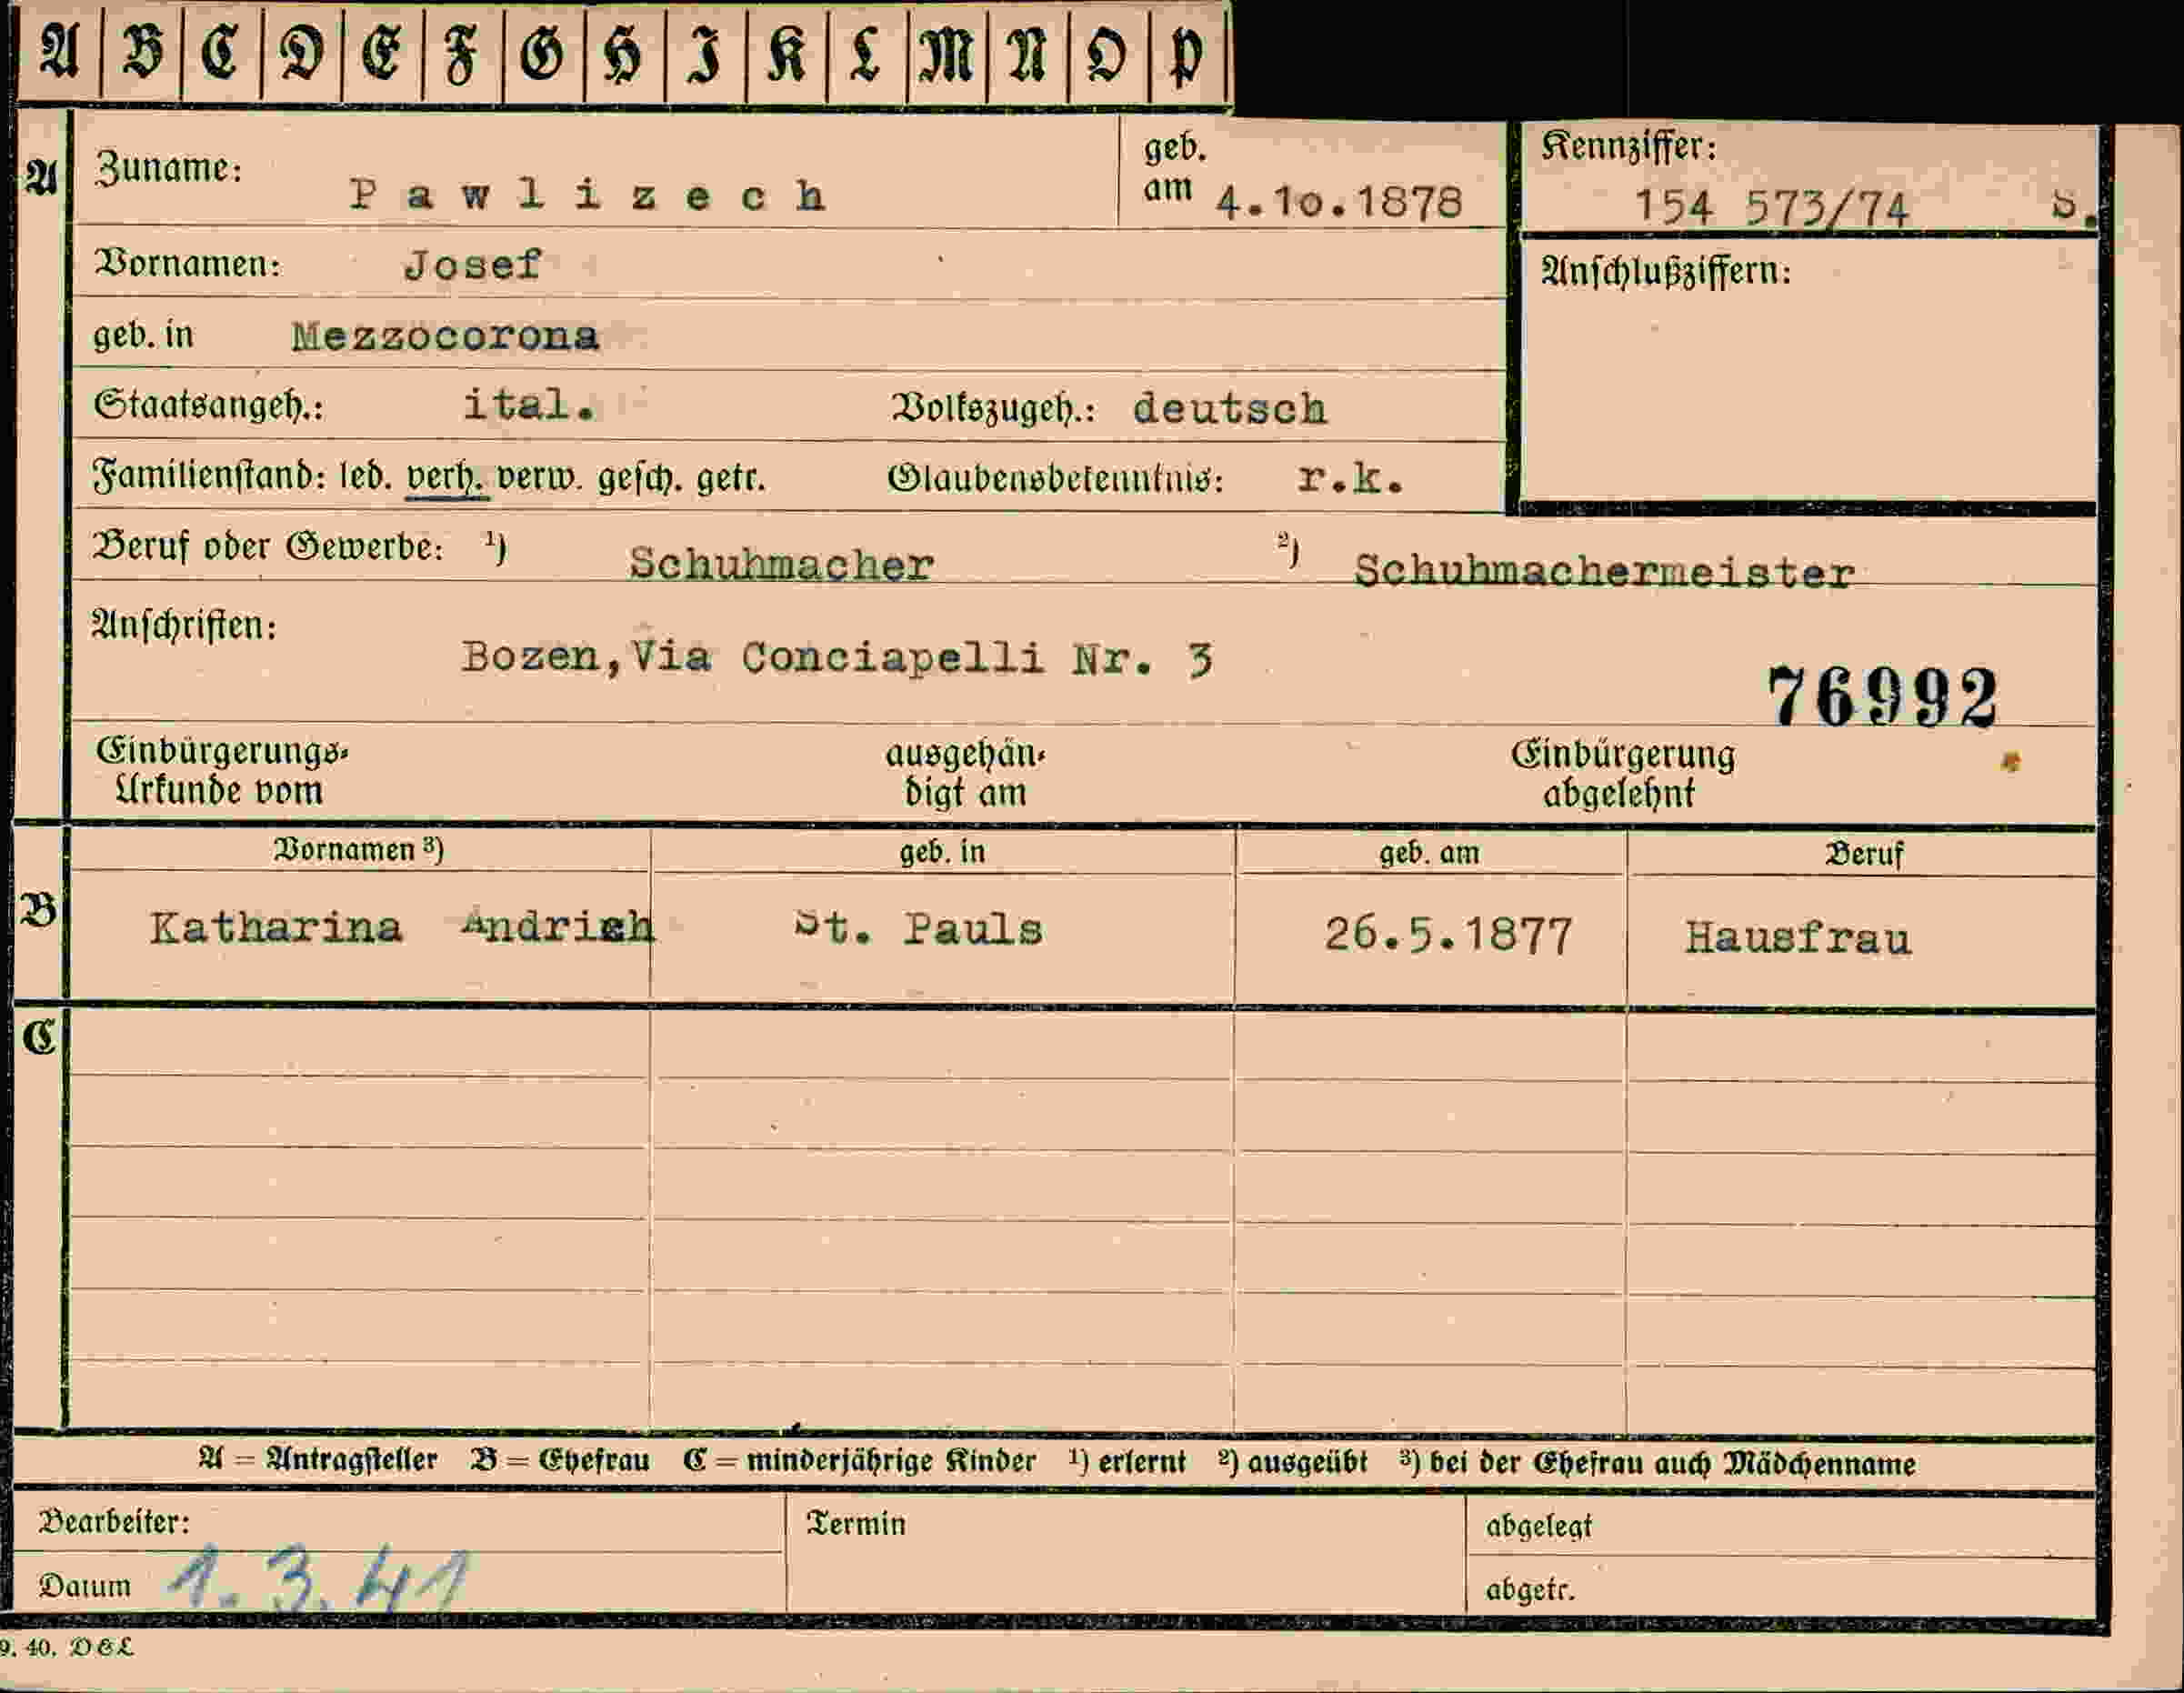 A B C D E F G H I K L M N O P
A
Zuname: Pawlizech
geb. am 4.10.1878
Kennziffer: 154 573/74 S.
Vornamen: Josef
Anschlußziffern:
geb. in Mezzocorona
Staatsangeh.: ital. Volkszugeh.: deutsch
Familienstand: led. verh. verw. gesch. getr. Glaubensbekenntnis: r.k.
Beruf oder Gewerbe: ¹) Schuhmacher ²) Schuhmachermeister
Anschriften: Bozen, Via Conciapelli Nr. 3
76992
Einbürgerungs- ausgehän- Einbürgerung
Urkunde vom digt am abgelehnt
Vornamen ³) geb. in geb. am Beruf
B Katharina Andrich St. Pauls 26.5.1877 Hausfrau
C
A = Antragsteller B = Ehefrau C = minderjährige Kinder ¹) erlernt ²) ausgeübt ³) bei der Ehefrau auch Mädchenname
Bearbeiter: Termin abgelegt
Datum 1.3.41 abgetr.
9. 40. DEL